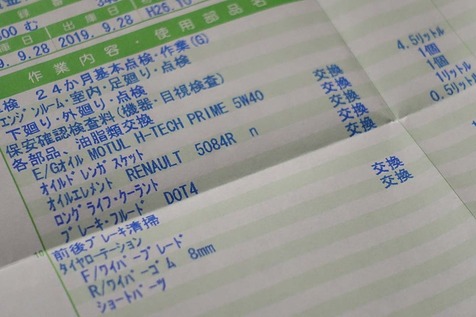 300 む
入庫日 出庫日
9.28 2019.9.28 H26.10
作業内容・使用部品名
検 24か月基本点検・作業(G)
エンジンルーム・室内・足廻り・点検
下廻り・外廻り・点検
保安確認検査料(機器・目視検査)
各部品、油脂類交換
E/Gオイル MOTUL H-TECH PRIME 5W40 交換 4.5リットル
オイルドレンガスケット 交換 1個
オイルエレメント RENAULT 5084R n 交換 1個
ロングライフ・クーラント 交換 1リットル
ブレーキ・フルード DOT4 交換 0.5リットル
前後ブレーキ清掃
タイヤローテーション
F/ワイパーブレード 交換
R/ワイパーゴム 8mm 交換
ショートパーツ